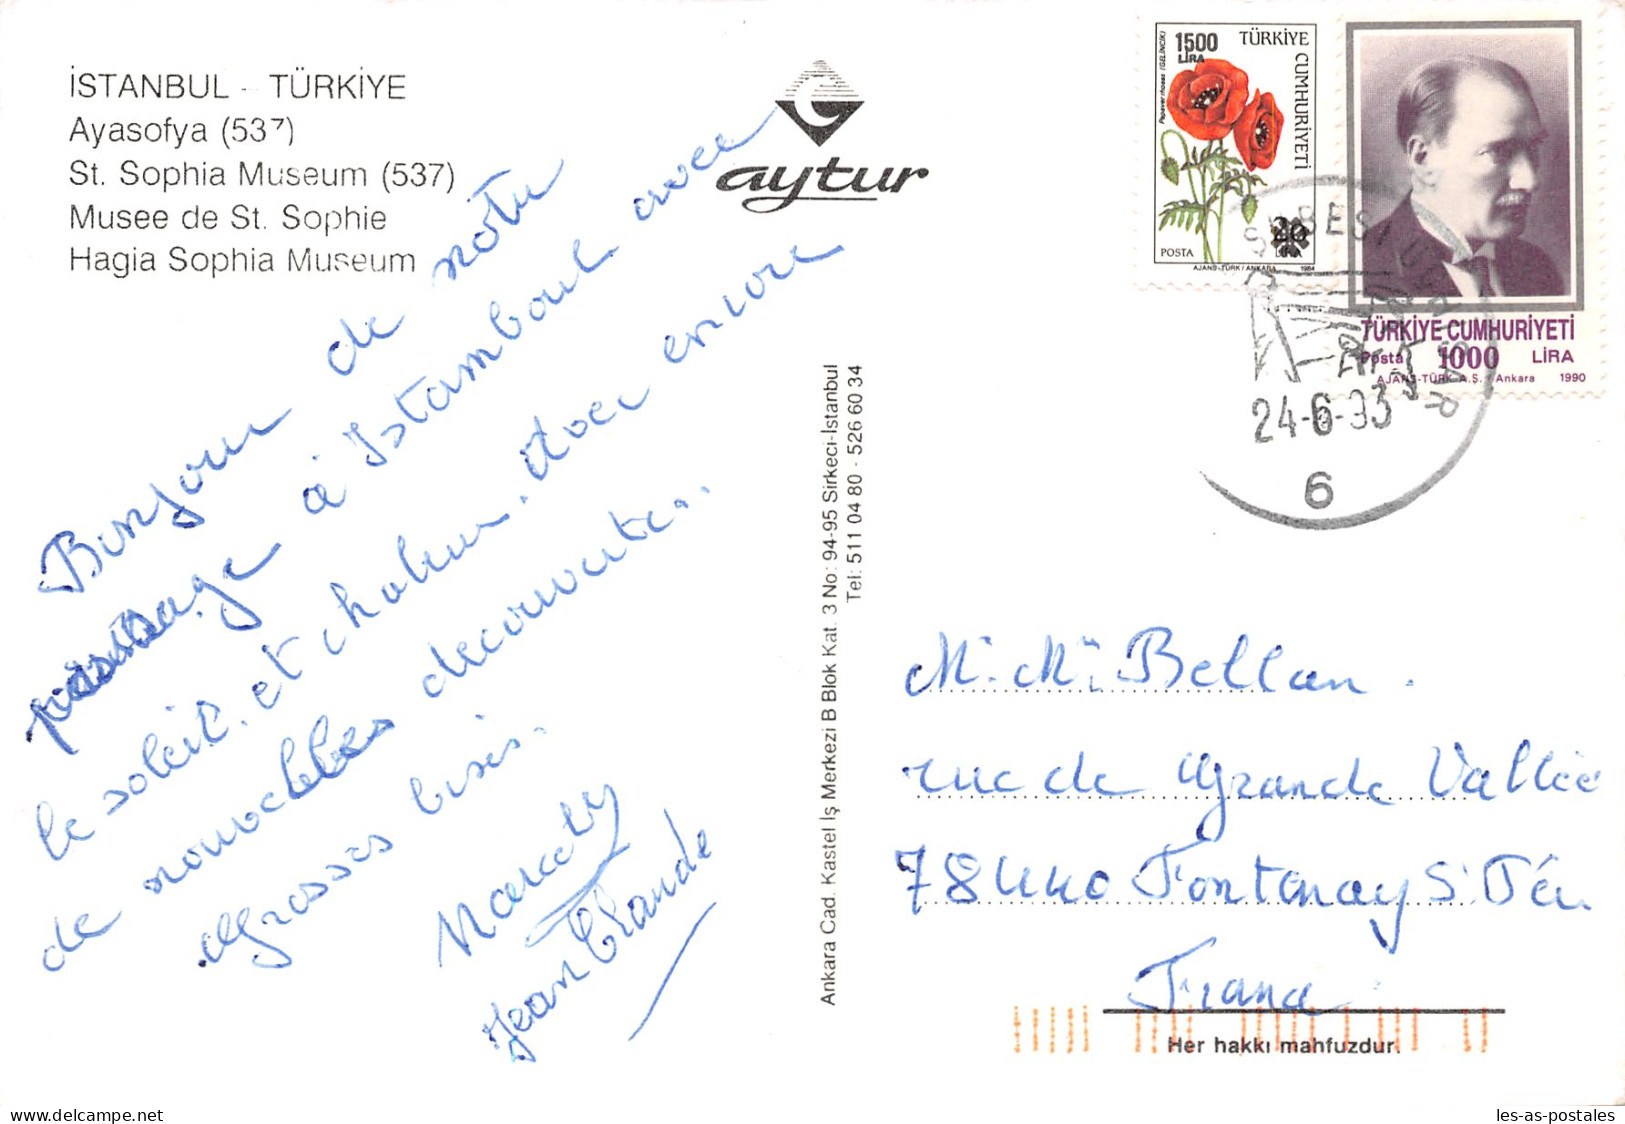 İSTANBUL - TÜRKİYE
Ayasofya (537)
St. Sophia Museum (537)
Musee de St. Sophie
Hagia Sophia Museum
aytur
Bonjour de notre
passage à Istamboul avec
le soleil. et chaleur. Avec encore
de nouvelles decouvertes.
Grosses bises.
Marcelly
Jean Claude
Ankara Cad. Kastel İş Merkezi B Blok Kat. 3 No: 94-95 Sirkeci-İstanbul
Tel: 511 04 80 - 526 60 34
1500
LİRA
TÜRKİYE CUMHURİYETİ
Papaver rhoeas (GELİNCİK)
20
LİRA
POSTA
AJANS-TÜRK / ANKARA 1984
TÜRKİYE CUMHURİYETİ
Posta 1000 LİRA
AJANS-TÜRK A.Ş. Ankara 1990
24-6-93
6
Mr. Me Bellan.
rue de Grande Vallée
78440 Fontenay St Père
France
Her hakkı mahfuzdur.
les-as-postales